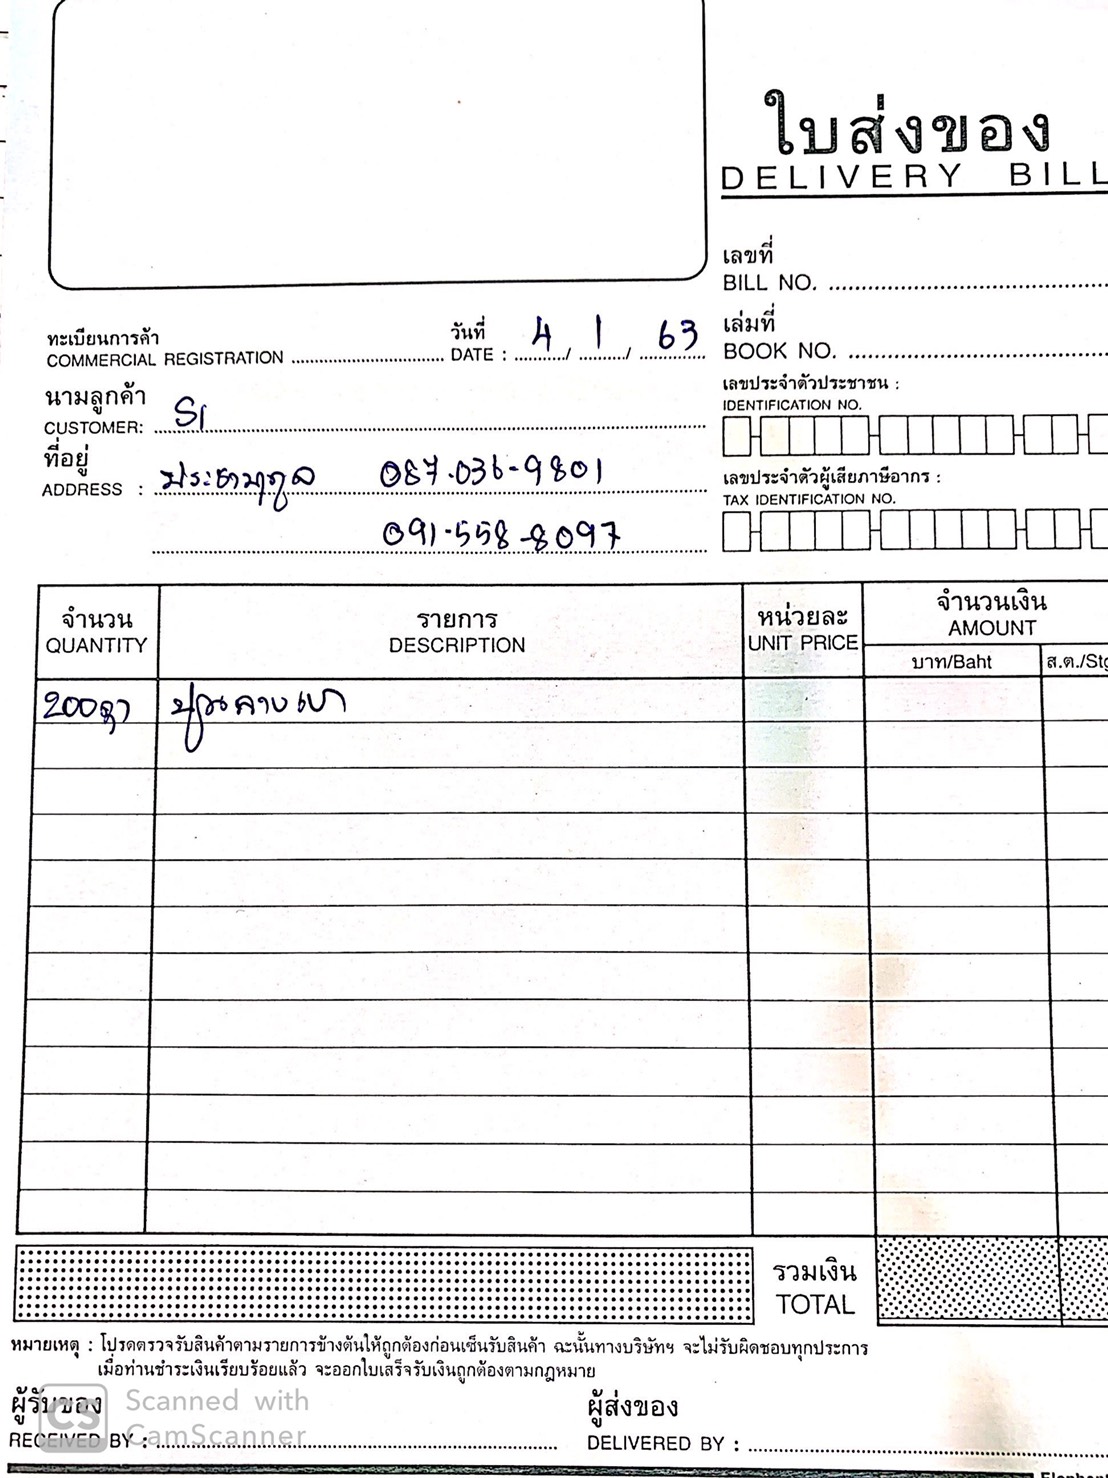 ใบส่งของ
DELIVERY BILL
เลขที่
BILL NO.
ทะเบียนการค้า
COMMERCIAL REGISTRATION
วันที่
DATE : 4 / 1 / 63
เล่มที่
BOOK NO.
นามลูกค้า
CUSTOMER: SI
เลขประจำตัวประชาชน :
IDENTIFICATION NO.
ที่อยู่
ADDRESS : ประชานุกูล 087-036-9801
091-558-8097
เลขประจำตัวผู้เสียภาษีอากร :
TAX IDENTIFICATION NO.
จำนวน
QUANTITY
รายการ
DESCRIPTION
หน่วยละ
UNIT PRICE
จำนวนเงิน
AMOUNT
บาท/Baht
ส.ต./Stg
200 ปูน
รวมเงิน
TOTAL
หมายเหตุ : โปรดตรวจรับสินค้าตามรายการข้างต้นให้ถูกต้องก่อนเซ็นรับสินค้า ฉะนั้นทางบริษัทฯ จะไม่รับผิดชอบทุกประการ
เมื่อท่านชำระเงินเรียบร้อยแล้ว จะออกใบเสร็จรับเงินถูกต้องตามกฎหมาย
ผู้รับของ
RECEIVED BY :
ผู้ส่งของ
DELIVERED BY :
CS Scanned with
CamScanner